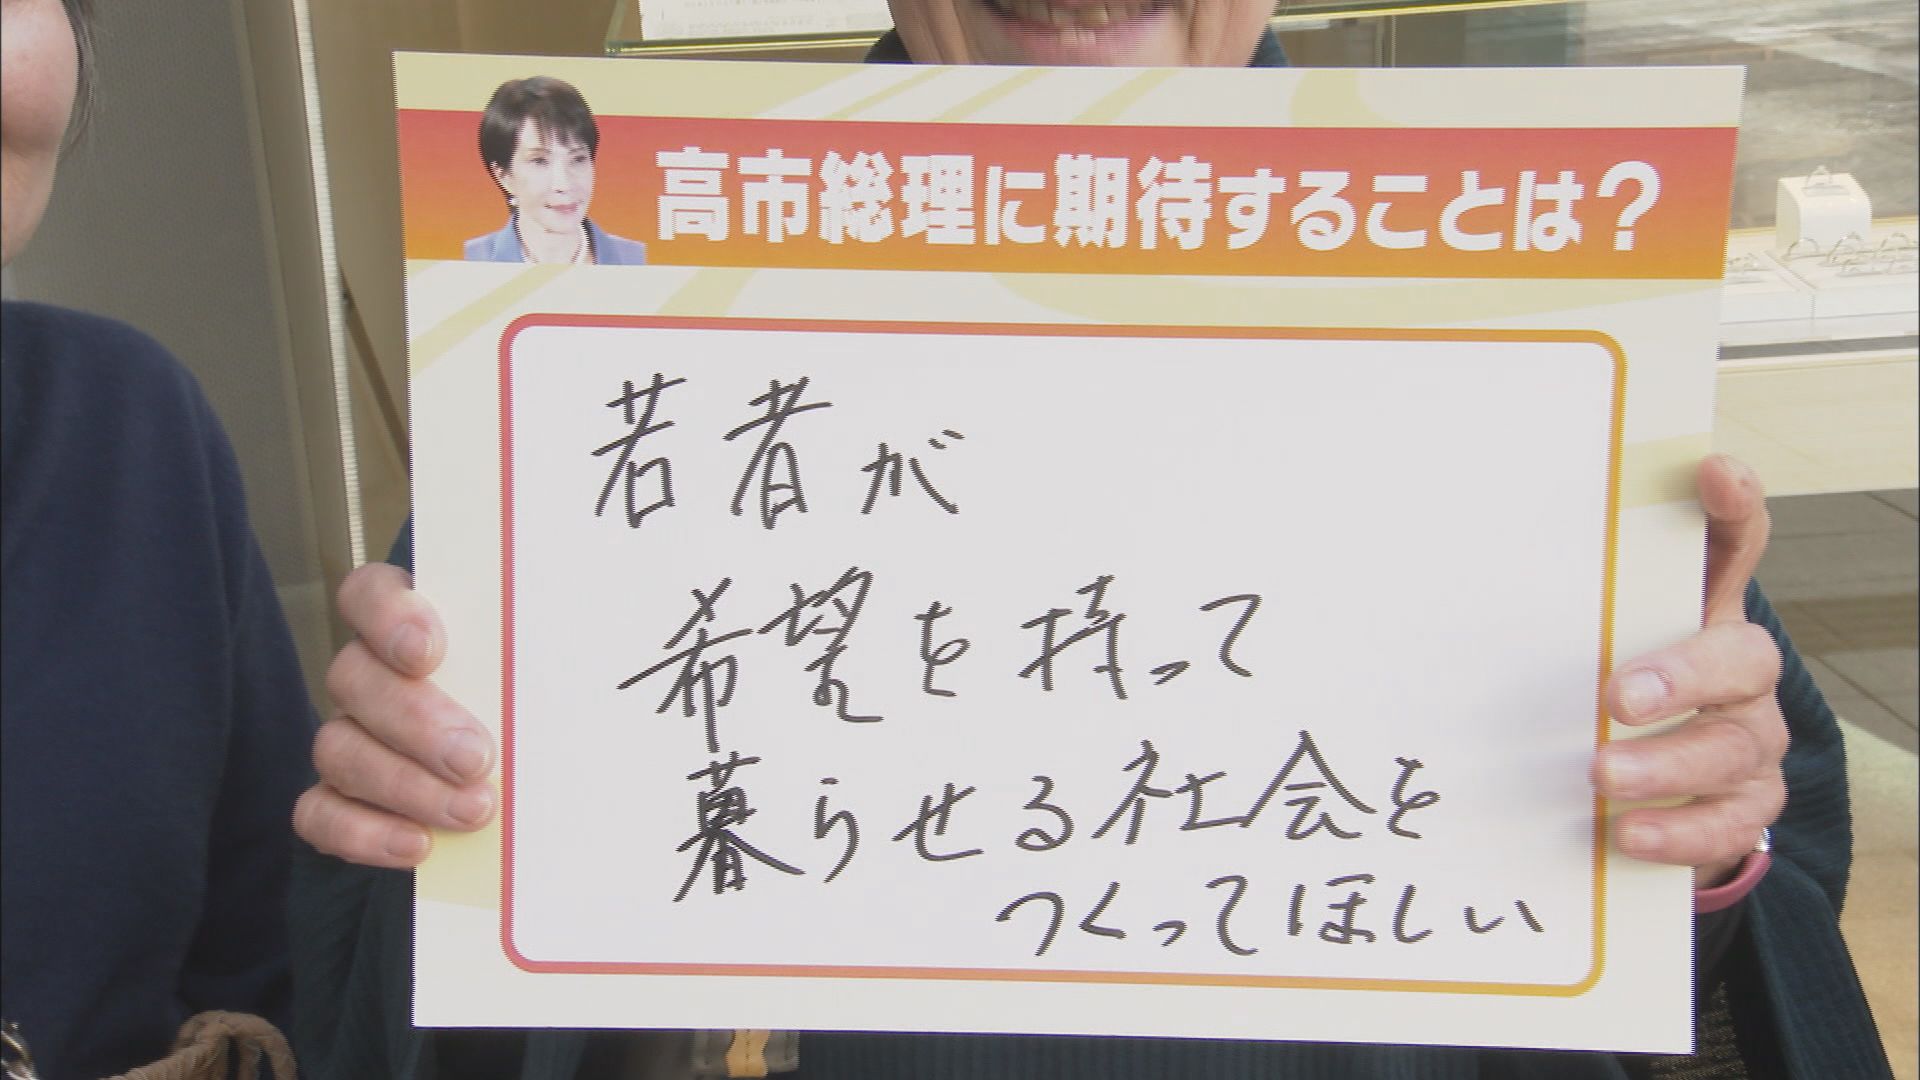 高市総理に期待することは？
若者が
希望を持って
暮らせる社会を
つくってほしい